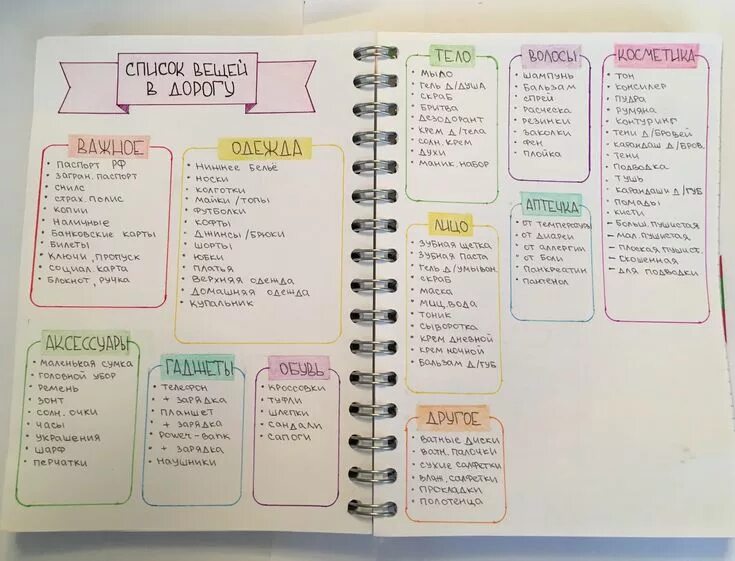 СПИСОК ВЕЩЕЙ
В ДОРОГУ
ВАЖНОЕ
• ПАСПОРТ РФ
• ЗАГРАН. ПАСПОРТ
• СНИЛС
• СТРАХ. ПОЛИС
• КОПИИ
• НАЛИЧНЫЕ
• БАНКОВСКИЕ КАРТЫ
• БИЛЕТЫ
• КЛЮЧИ, ПРОПУСК
• СОЦИАЛ. КАРТА
• БЛОКНОТ, РУЧКА
ОДЕЖДА
• НИЖНЕЕ БЕЛЬЁ
• НОСКИ
• КОЛГОТКИ
• МАЙКИ / ТОПЫ
• ФУТБОЛКИ
• КОФТЫ
• ДЖИНСЫ / БРЮКИ
• ШОРТЫ
• ЮБКИ
• ПЛАТЬЯ
• ВЕРХНЯЯ ОДЕЖДА
• ДОМАШНЯЯ ОДЕЖДА
• КУПАЛЬНИК
АКСЕССУАРЫ
• МАЛЕНЬКАЯ СУМКА
• ГОЛОВНОЙ УБОР
• РЕМЕНЬ
• ЗОНТ
• СОЛН. ОЧКИ
• ЧАСЫ
• УКРАШЕНИЯ
• ШАРФ
• ПЕРЧАТКИ
ГАДЖЕТЫ
• ТЕЛЕФОН
• + ЗАРЯДКА
• ПЛАНШЕТ
• + ЗАРЯДКА
• POWER-BANK
• + ЗАРЯДКА
• НАУШНИКИ
ОБУВЬ
• КРОССОВКИ
• ТУФЛИ
• ШЛЕПКИ
• САНДАЛИ
• САПОГИ
ТЕЛО
• МЫЛО
• ГЕЛЬ Д/ДУША
• СКРАБ
• БРИТВА
• ДЕЗОДОРАНТ
• КРЕМ Д/ТЕЛА
• СОЛН. КРЕМ
• ДУХИ
• МАНИК. НАБОР
ВОЛОСЫ
• ШАМПУНЬ
• БАЛЬЗАМ
• СПРЕЙ
• РАСЧЕСКА
• РЕЗИНКИ
• ЗАКОЛКИ
• ФЕН
• ПЛОЙКА
КОСМЕТИКА
• ТОН
• КОНСИЛЕР
• ПУДРА
• РУМЯНА
• КОНТУРИНГ
• ТЕНИ Д/БРОВЕЙ
• КАРАНДАШ Д/БРОВ.
• ТЕНИ
• ПОДВОДКА
• ТУШЬ
• КАРАНДАШИ Д/ГУБ
• ПОМАДЫ
• КИСТИ
– БОЛЬШ. ПУШИСТАЯ
– МАЛ. ПУШИСТАЯ
– ПЛОСКАЯ ПУШИСТ.
– СКОШЕННАЯ
– ДЛЯ ПОДВОДКИ
ЛИЦО
• ЗУБНАЯ ЩЕТКА
• ЗУБНАЯ ПАСТА
• ГЕЛЬ Д/УМЫВАН.
• СКРАБ
• МАСКА
• МИЦ. ВОДА
• ТОНИК
• СЫВОРОТКА
• КРЕМ ДНЕВНОЙ
• КРЕМ НОЧНОЙ
• БАЛЬЗАМ Д/ГУБ
АПТЕЧКА
• ОТ ТЕМПЕРАТУРЫ
• ОТ ДИАРЕИ
• ОТ АЛЛЕРГИИ
• ОТ БОЛИ
• ПАНКРЕАТИН
• ПАНТЕНОЛ
ДРУГОЕ
• ВАТНЫЕ ДИСКИ
• ВАТН. ПАЛОЧКИ
• СУХИЕ САЛФЕТКИ
• ВЛАЖ. САЛФЕТКИ
• ПРОКЛАДКИ
• ПОЛОТЕНЦА